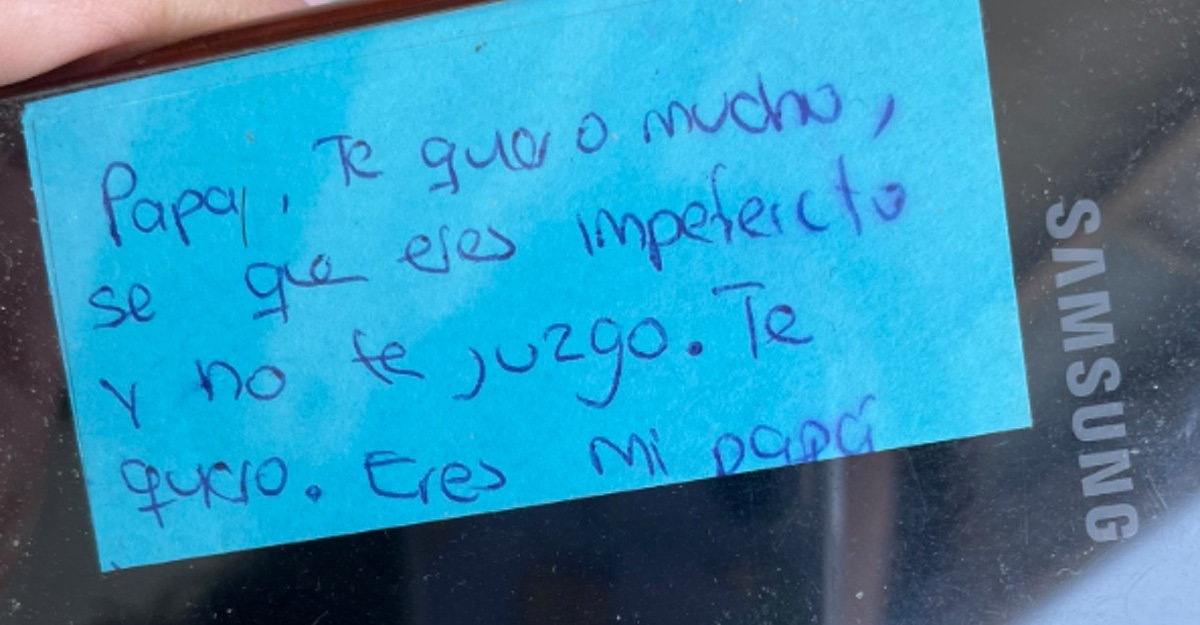 Papa, Te quiero mucho,
se que eres impefercto
y no te juzgo. Te
quiero. Eres mi papá
SAMSUNG